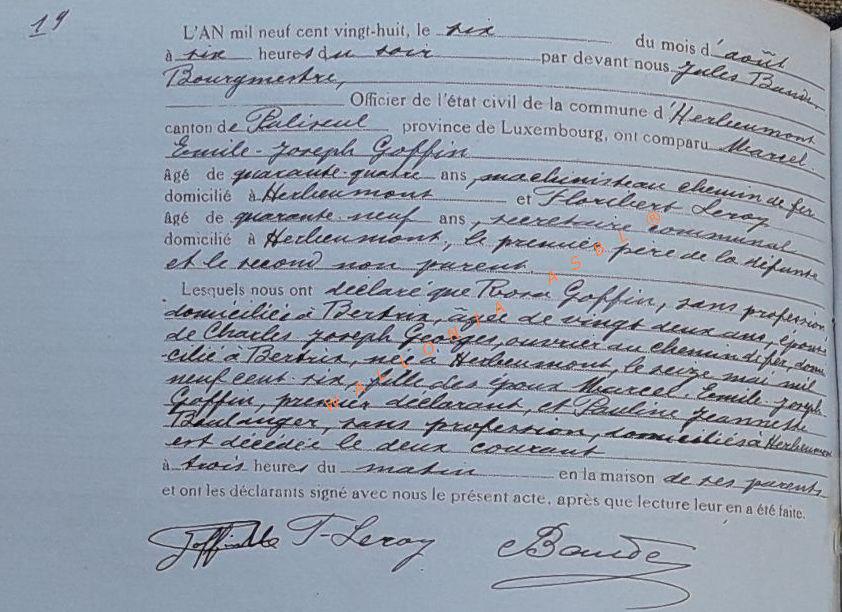 19
L'AN mil neuf cent vingt-huit, le six du mois d'août
à six heures du soir par devant nous Jules Baude,
Bourgmestre,
Officier de l'état civil de la commune d'Herbeumont
canton de Paliseul province de Luxembourg, ont comparu Marcel
Emile-Joseph Goffin
âgé de quarante-quatre ans, machiniste au chemin de fer
domicilié à Herbeumont et Floribert Leroy
âgé de quarante-neuf ans, secrétaire communal
domicilié à Herbeumont, le premier père de la défunte
et le second non parent.
Lesquels nous ont déclaré que Rosa Goffin, sans profession
domiciliée à Bertrix, âgée de vingt deux ans, épouse
de Charles Joseph Georges, ouvrier au chemin de fer, domi-
cilié à Bertrix, née à Herbeumont, le seize mai mil
neuf cent-six, fille des époux Marcel, Emile-Joseph
Goffin, premier déclarant, et Pauline Jeannette
Boulanger, sans profession, domiciliés à Herbeumont
est décédée le deux courant
à trois heures du matin en la maison de ses parents
et ont les déclarants signé avec nous le présent acte, après que lecture leur en a été faite.
F-Leroy Baude
WALLONIA ASBL ®